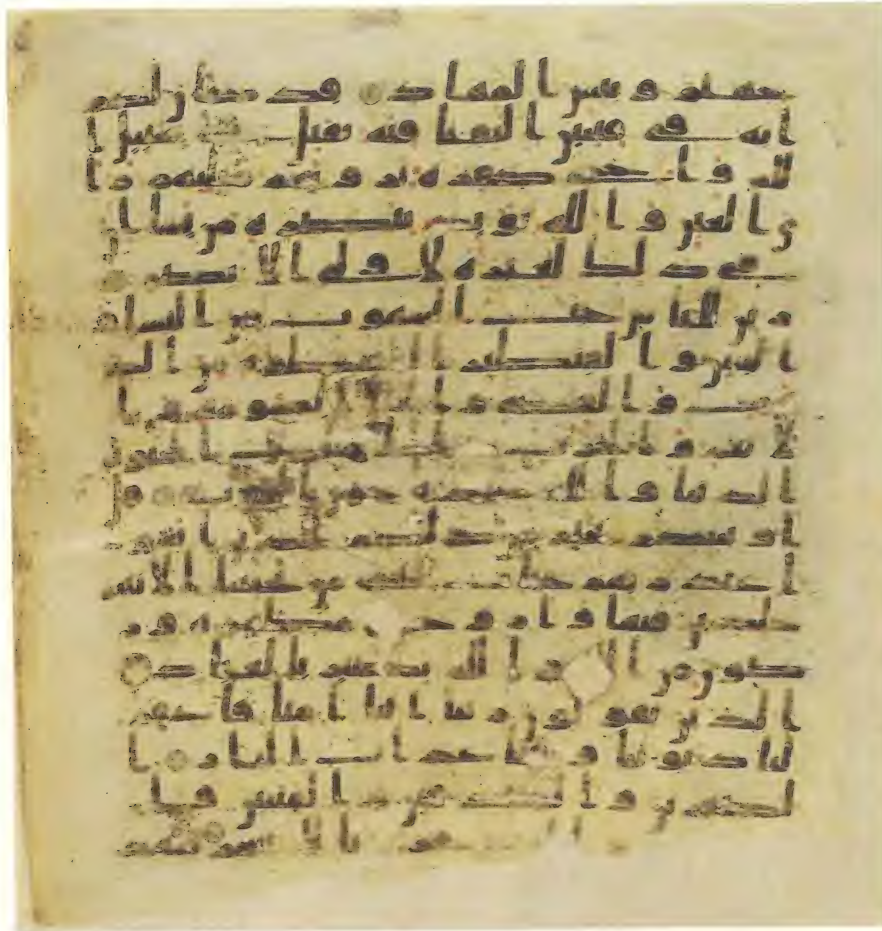 جهنم وبئس المهاد قد كان لكم
ايه في فئتين التقتا فئه تقتل في سبيل ا
لله واخرى كفره يرونهم مثليهم ر ا
ي العين والله يويد بنصره من يشا ان
في ذلك لعبره لاولي الابصر
زين للناس حب الشهوت من النسا و
البنين والقنطير المقنطره من الذ
هب والفضه والخيل المسومه و ا
لانعم والحرث ذلك متع الحيوه
الدنيا والله عنده حسن الماب قل
اونبئكم بخير من ذلكم للذين اتقو
ا عند ربهم جنت تجري من تحتها الانهر
خلدين فيها وازوج مطهره ور
ضون من الله والله بصير بالعباد
الذين يقولون ربنا اننا امنا فاغفر
لنا ذنوبنا وقنا عذاب النار ا
لصبرين والصدقين
بالاسحر شهد